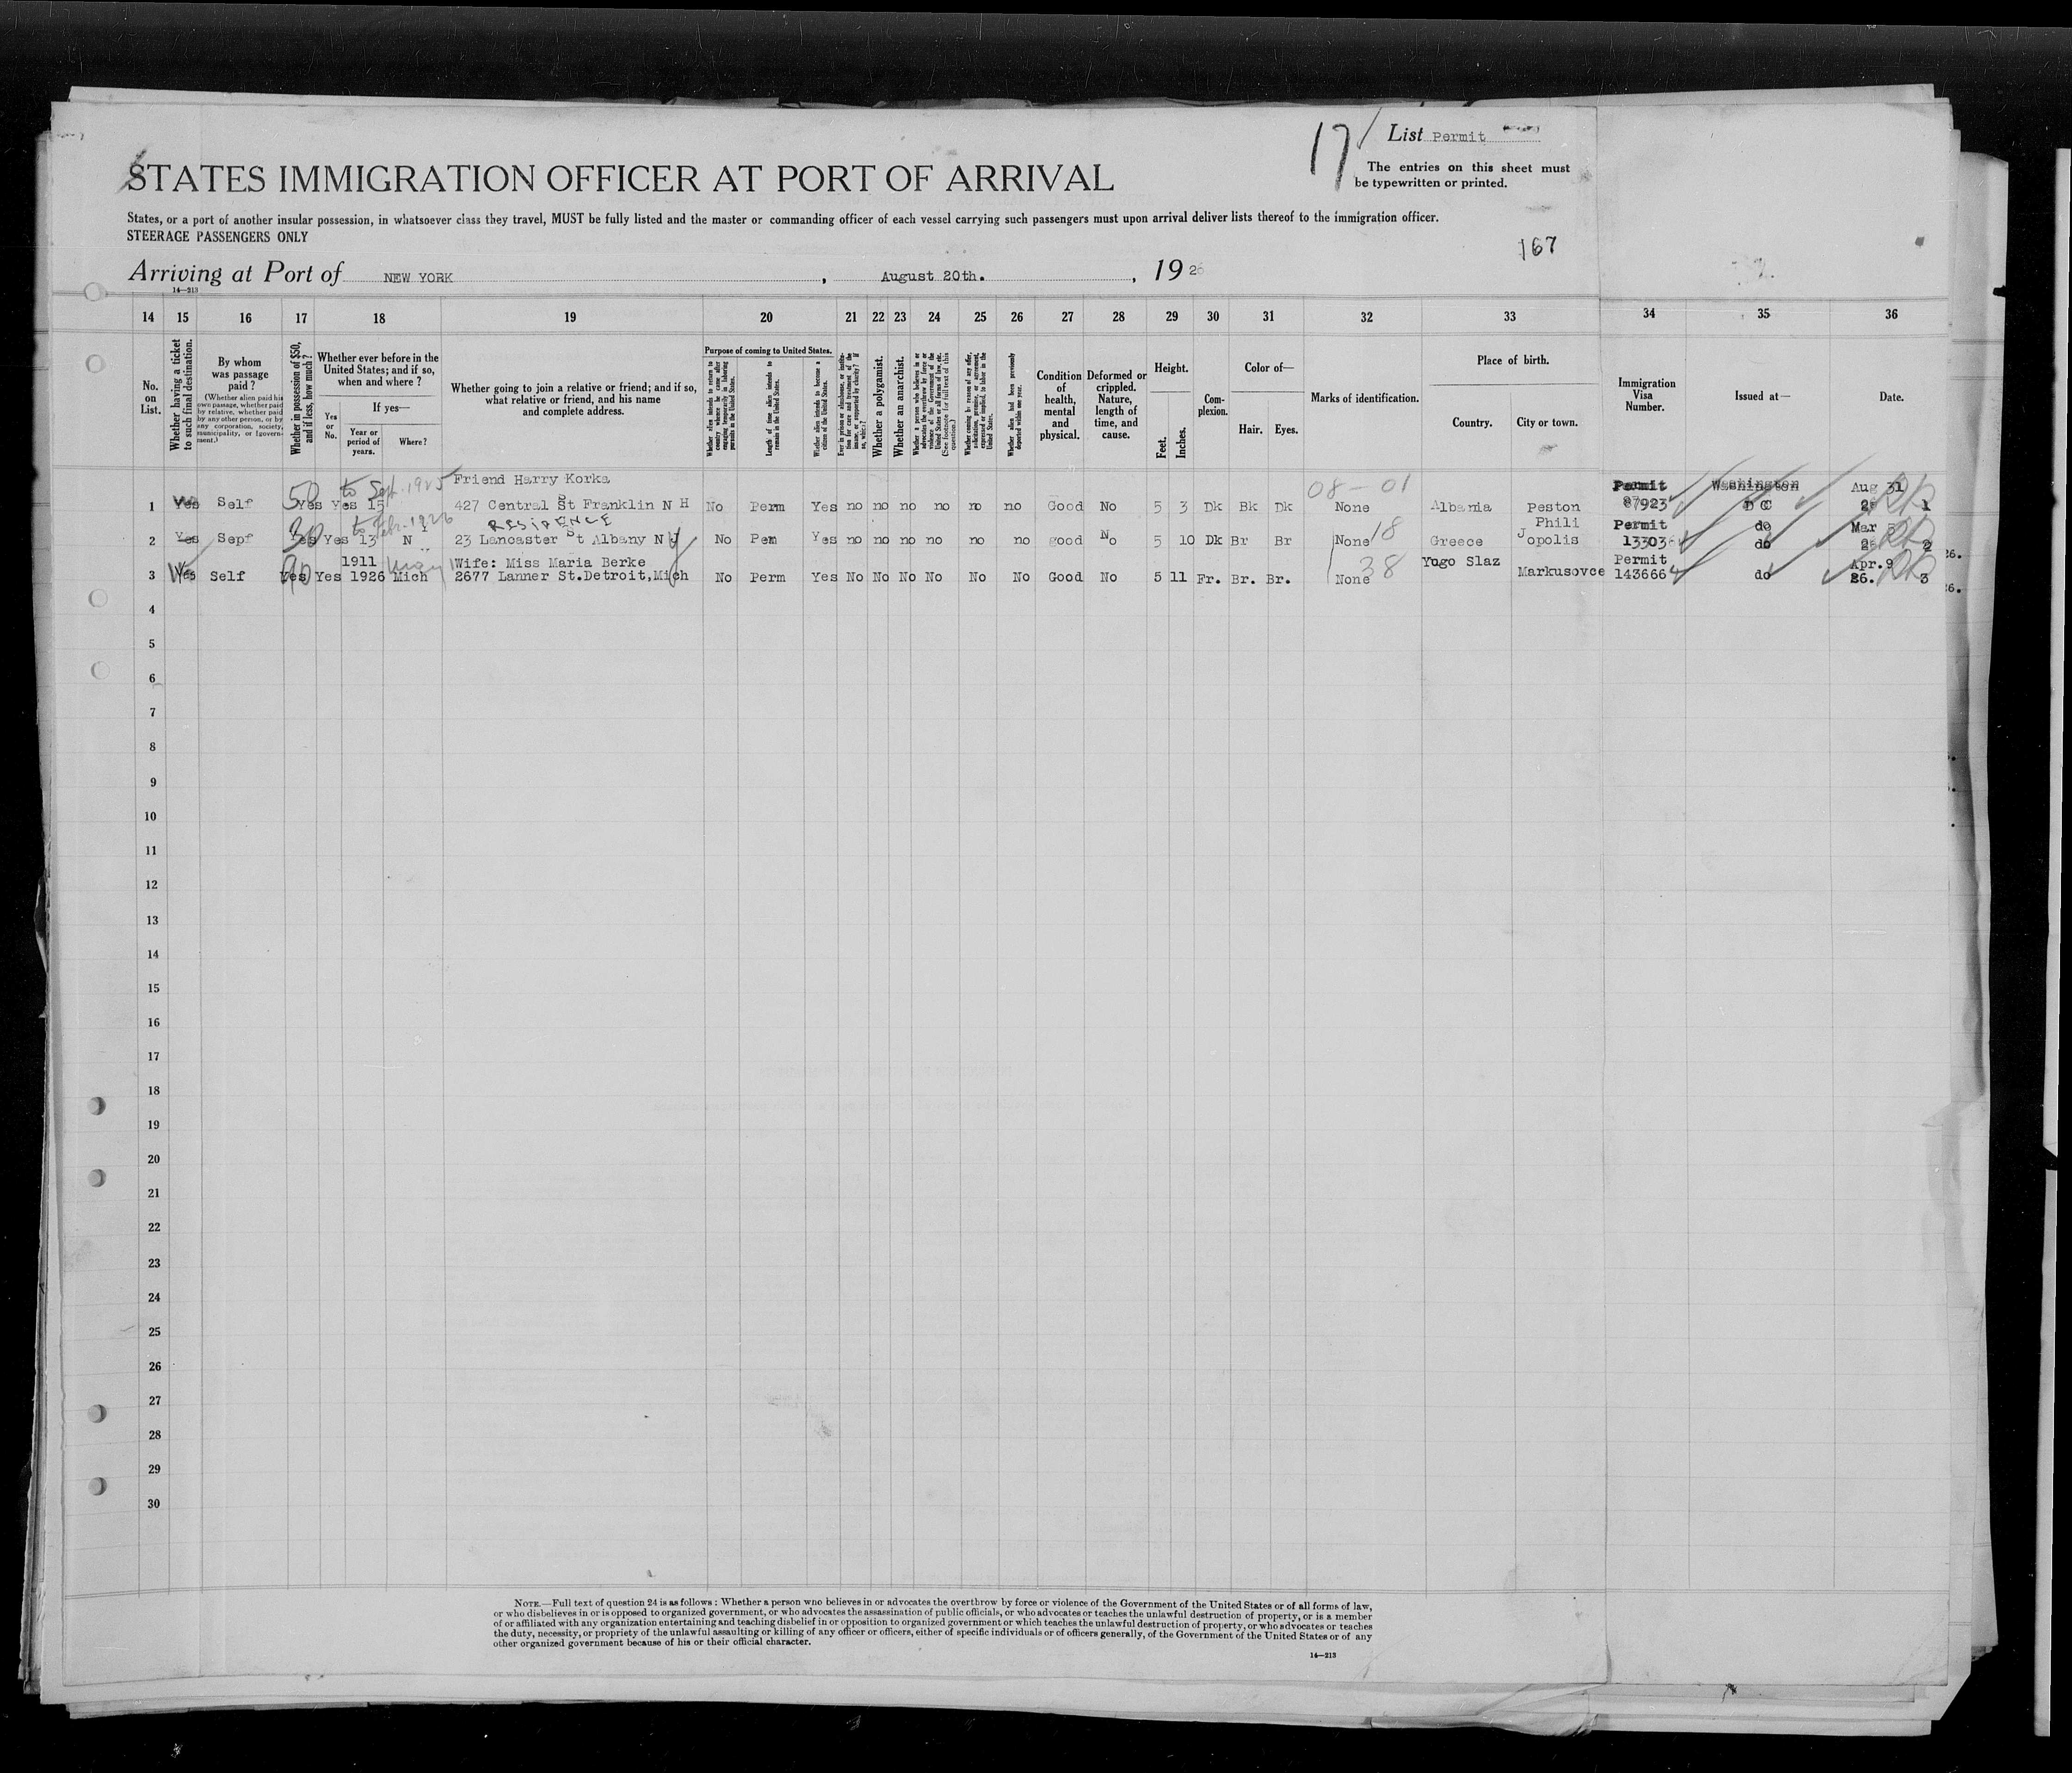 17/ List Permit
The entries on this sheet must
be typewritten or printed.
STATES IMMIGRATION OFFICER AT PORT OF ARRIVAL
States, or a port of another insular possession, in whatsoever class they travel, MUST be fully listed and the master or commanding officer of each vessel carrying such passengers must upon arrival deliver lists thereof to the immigration officer.
STEERAGE PASSENGERS ONLY
167
Arriving at Port of NEW YORK, August 20th., 1926
14—213
14 15 16 17 18 19 20 21 22 23 24 25 26 27 28 29 30 31 32 33 34 35 36
No. on List.
Whether having a ticket to such final destination.
By whom was passage paid?
(Whether alien paid his own passage, whether paid by relative, whether paid by any other person, or by any corporation, society, municipality, or government.)
Whether in possession of $50, and if less, how much?
Whether ever before in the United States; and if so, when and where?
Yes or No.
If yes—
Year or period of years.
Where?
Whether going to join a relative or friend; and if so, what relative or friend, and his name and complete address.
Purpose of coming to United States.
Whether alien intends to return to country whence he came after engaging temporarily in laboring pursuits in the United States.
Length of time alien intends to remain in the United States.
Whether alien intends to become a citizen of the United States.
Ever in prison or almshouse, or institution for care and treatment of the insane, or supported by charity? If so, which?
Whether a polygamist.
Whether an anarchist.
Whether a person who believes in or advocates the overthrow by force or violence of the Government of the United States or all forms of law, etc. (See footnote for full text of this question.)
Whether coming by reason of any offer, solicitation, promise, or agreement, expressed or implied, to labor in the United States.
Whether alien had been previously deported within one year.
Condition of health, mental and physical.
Deformed or crippled. Nature, length of time, and cause.
Height.
Feet.
Inches.
Complexion.
Color of—
Hair.
Eyes.
Marks of identification.
Place of birth.
Country.
City or town.
Immigration Visa Number.
Issued at—
Date.
to Sept. 1925 Friend Harry Korka 08-01 Permit Washington Aug 31
1 Yes Self 50 Yes Yes 15 427 Central St Franklin N H No Perm Yes no no no no no no Good No 5 3 Dk Bk Dk None Albania Peston 87923 D C 1
to Feb. 1926 RESIDENCE Phili Permit do Mar
2 Yes Sepf 30 Yes Yes 13 N Y 23 Lancaster St Albany N Y No Pem Yes no no no no no no good No 5 10 Dk Br Br None 18 Greece Jopolis 13303 do 2
1911 Wife: Miss Maria Berke 38 Yugo Slaz Permit Apr. 9
3 Yes Self 90 Yes Yes 1926 Mich 2677 Lanner St.Detroit,Mich No Perm Yes No No No No No No Good No 5 11 Fr. Br. Br. None Markusovce 143666 do 26. 3
4
5
6
7
8
9
10
11
12
13
14
15
16
17
18
19
20
21
22
23
24
25
26
27
28
29
30
NOTE.—Full text of question 24 is as follows: Whether a person who believes in or advocates the overthrow by force or violence of the Government of the United States or of all forms of law,
or who disbelieves in or is opposed to organized government, or who advocates the assassination of public officials, or who advocates or teaches the unlawful destruction of property, or is a member
of or affiliated with any organization entertaining and teaching disbelief in or opposition to organized government or which teaches the unlawful destruction of property, or who advocates or teaches
the duty, necessity, or propriety of the unlawful assaulting or killing of any officer or officers, either of specific individuals or of officers generally, of the Government of the United States or of any
other organized government because of his or their official character.
14—213